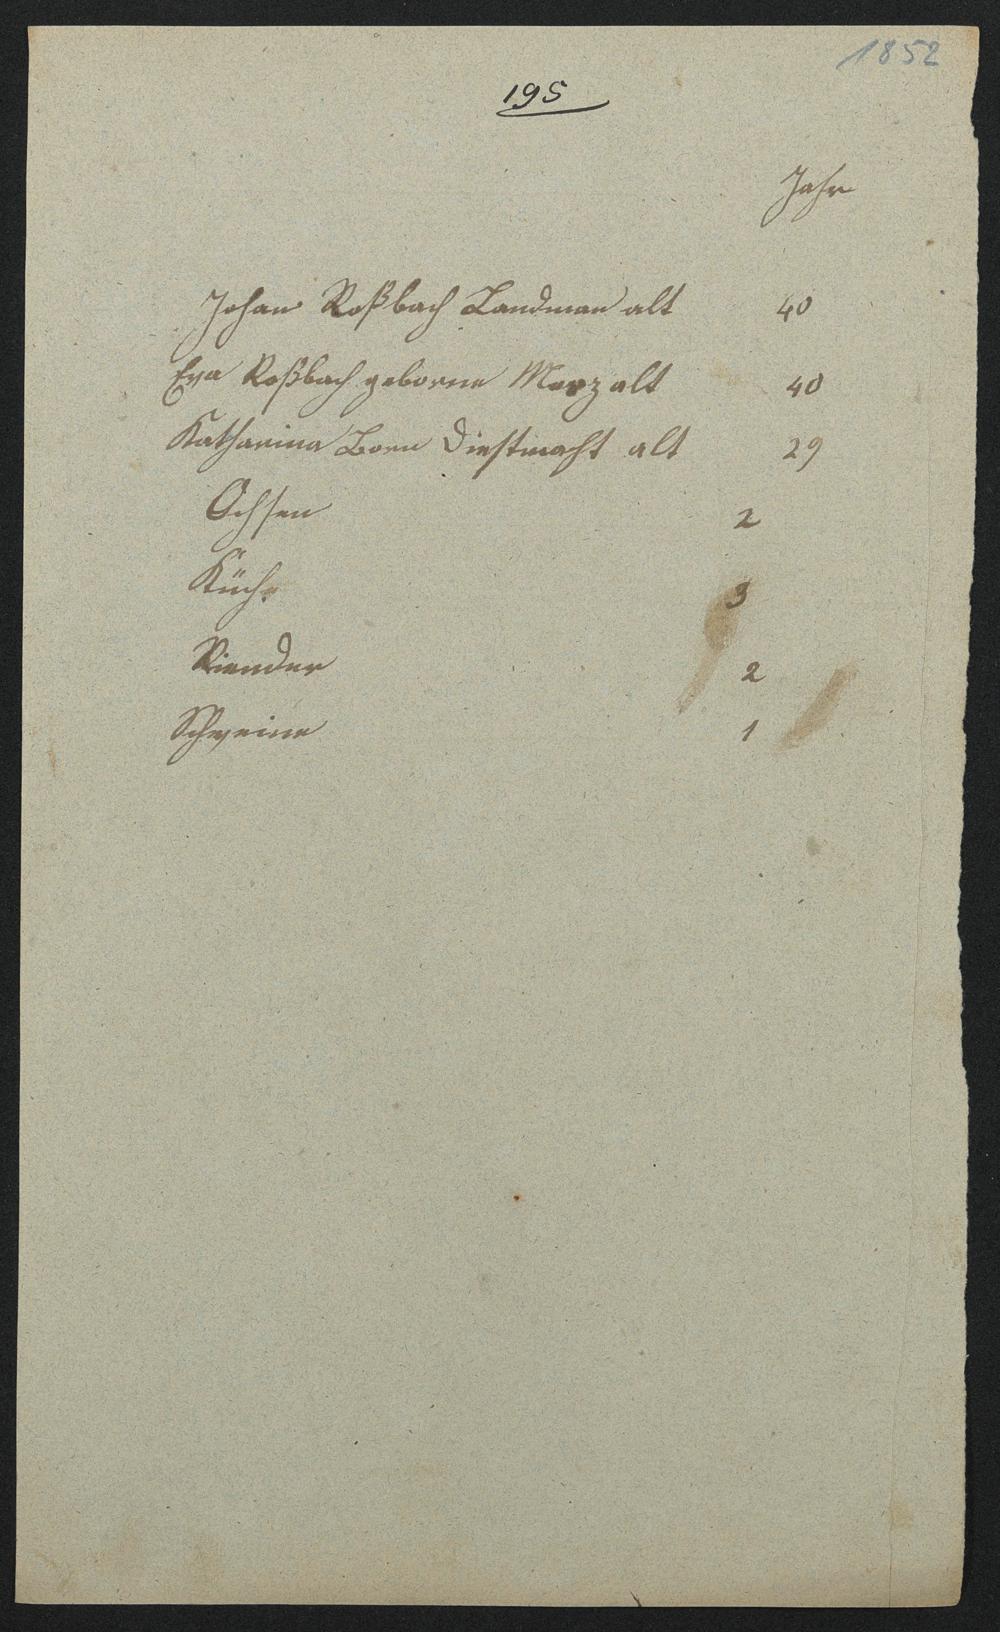 1852
195
Jahr
Johan Roßbach Landman alt 40
Eva Roßbach geborne Merz alt 40
Katharina Born Dinstmacht alt 29
Ochsen 2
Küche 3
Riender 2
Schweine 1